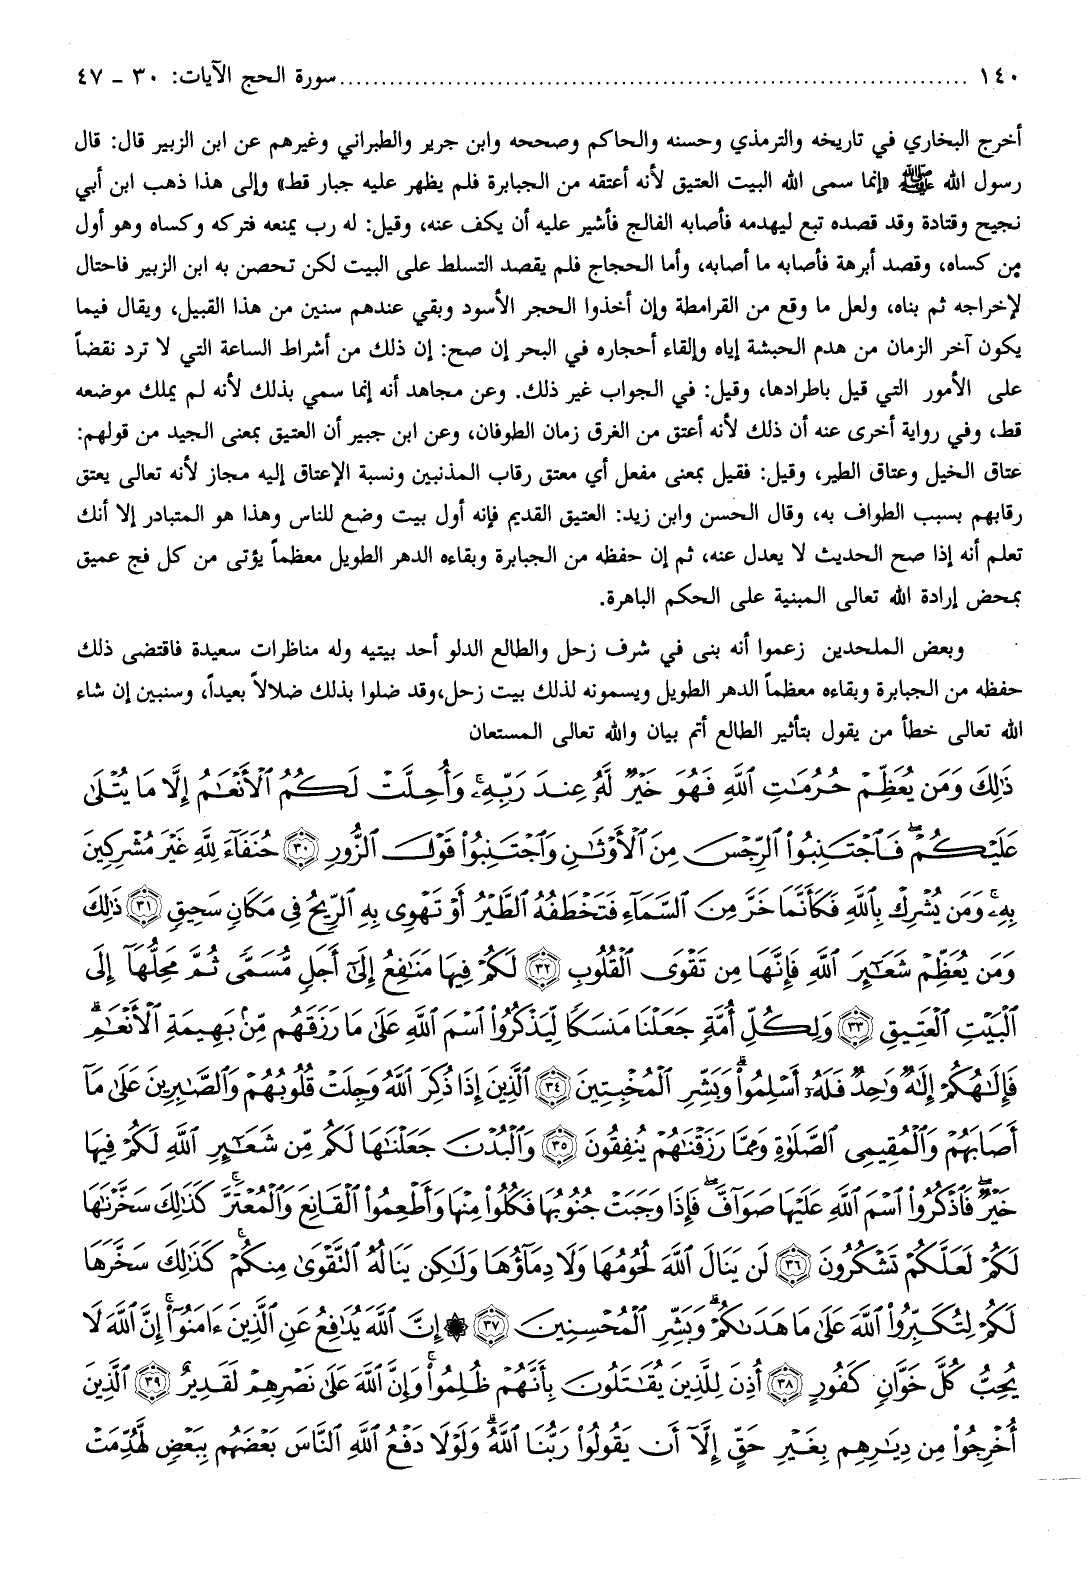 ١٤٠ ........................................................................ سورة الحج الآيات: ٣٠ - ٤٧
أخرج البخاري في تاريخه والترمذي وحسنه والحاكم وصححه وابن جرير والطبراني وغيرهم عن ابن الزبير قال: قال
رسول الله ﷺ «إنما سمى الله البيت العتيق لأنه أعتقه من الجبابرة فلم يظهر عليه جبار قط» وإلى هذا ذهب ابن أبي
نجيح وقتادة وقد قصده تبع ليهدمه فأصابه الفالج فأشير عليه أن يكف عنه، وقيل: له رب يمنعه فتركه وكساه وهو أول
من كساه، وقصد أبرهة فأصابه ما أصابه، وأما الحجاج فلم يقصد التسلط على البيت لكن تحصن به ابن الزبير فاحتال
لإخراجه ثم بناه، ولعل ما وقع من القرامطة وإن أخذوا الحجر الأسود وبقي عندهم سنين من هذا القبيل، ويقال فيما
يكون آخر الزمان من هدم الحبشة إياه وإلقاء أحجاره في البحر إن صح: إن ذلك من أشراط الساعة التي لا ترد نقضاً
على الأمور التي قيل باطرادها، وقيل: في الجواب غير ذلك. وعن مجاهد أنه إنما سمي بذلك لأنه لم يملك موضعه
قط، وفي رواية أخرى عنه أن ذلك لأنه أعتق من الغرق زمان الطوفان، وعن ابن جبير أن العتيق بمعنى الجيد من قولهم:
عتاق الخيل وعتاق الطير، وقيل: فقيل بمعنى مفعل أي معتق رقاب المذنبين ونسبة الإعتاق إليه مجاز لأنه تعالى يعتق
رقابهم بسبب الطواف به، وقال الحسن وابن زيد: العتيق القديم فإنه أول بيت وضع للناس وهذا هو المتبادر إلا أنك
تعلم أنه إذا صح الحديث لا يعدل عنه، ثم إن حفظه من الجبابرة وبقاءه الدهر الطويل معظماً يؤتى من كل فج عميق
بمحض إرادة الله تعالى المبنية على الحكم الباهرة.
وبعض الملحدين زعموا أنه بنى في شرف زحل والطالع الدلو أحد بيتيه وله مناظرات سعيدة فاقتضى ذلك
حفظه من الجبابرة وبقاءه معظماً الدهر الطويل ويسمونه لذلك بيت زحل،وقد ضلوا بذلك ضلالاً بعيداً، وسنبين إن شاء
الله تعالى خطأ من يقول بتأثير الطالع أتم بيان والله تعالى المستعان
ذَٰلِكَ وَمَن يُعَظِّمْ حُرُمَٰتِ ٱللَّهِ فَهُوَ خَيْرٌ لَّهُۥ عِندَ رَبِّهِۦ ۗ وَأُحِلَّتْ لَكُمُ ٱلْأَنْعَٰمُ إِلَّا مَا يُتْلَىٰ
عَلَيْكُمْ ۖ فَٱجْتَنِبُوا۟ ٱلرِّجْسَ مِنَ ٱلْأَوْثَٰنِ وَٱجْتَنِبُوا۟ قَوْلَ ٱلزُّورِ ۝٣٠ حُنَفَآءَ لِلَّهِ غَيْرَ مُشْرِكِينَ
بِهِۦ ۚ وَمَن يُشْرِكْ بِٱللَّهِ فَكَأَنَّمَا خَرَّ مِنَ ٱلسَّمَآءِ فَتَخْطَفُهُ ٱلطَّيْرُ أَوْ تَهْوِى بِهِ ٱلرِّيحُ فِى مَكَانٍ سَحِيقٍ ۝٣١ ذَٰلِكَ
وَمَن يُعَظِّمْ شَعَٰٓئِرَ ٱللَّهِ فَإِنَّهَا مِن تَقْوَى ٱلْقُلُوبِ ۝٣٢ لَكُمْ فِيهَا مَنَٰفِعُ إِلَىٰٓ أَجَلٍ مُّسَمًّى ثُمَّ مَحِلُّهَآ إِلَى
ٱلْبَيْتِ ٱلْعَتِيقِ ۝٣٣ وَلِكُلِّ أُمَّةٍ جَعَلْنَا مَنسَكًا لِّيَذْكُرُوا۟ ٱسْمَ ٱللَّهِ عَلَىٰ مَا رَزَقَهُم مِّنۢ بَهِيمَةِ ٱلْأَنْعَٰمِ ۗ
فَإِلَٰهُكُمْ إِلَٰهٌ وَٰحِدٌ فَلَهُۥٓ أَسْلِمُوا۟ ۗ وَبَشِّرِ ٱلْمُخْبِتِينَ ۝٣٤ ٱلَّذِينَ إِذَا ذُكِرَ ٱللَّهُ وَجِلَتْ قُلُوبُهُمْ وَٱلصَّٰبِرِينَ عَلَىٰ مَآ
أَصَابَهُمْ وَٱلْمُقِيمِى ٱلصَّلَوٰةِ وَمِمَّا رَزَقْنَٰهُمْ يُنفِقُونَ ۝٣٥ وَٱلْبُدْنَ جَعَلْنَٰهَا لَكُم مِّن شَعَٰٓئِرِ ٱللَّهِ لَكُمْ فِيهَا
خَيْرٌ ۖ فَٱذْكُرُوا۟ ٱسْمَ ٱللَّهِ عَلَيْهَا صَوَآفَّ ۖ فَإِذَا وَجَبَتْ جُنُوبُهَا فَكُلُوا۟ مِنْهَا وَأَطْعِمُوا۟ ٱلْقَانِعَ وَٱلْمُعْتَرَّ ۚ كَذَٰلِكَ سَخَّرْنَٰهَا
لَكُمْ لَعَلَّكُمْ تَشْكُرُونَ ۝٣٦ لَن يَنَالَ ٱللَّهَ لُحُومُهَا وَلَا دِمَآؤُهَا وَلَٰكِن يَنَالُهُ ٱلتَّقْوَىٰ مِنكُمْ ۚ كَذَٰلِكَ سَخَّرَهَا
لَكُمْ لِتُكَبِّرُوا۟ ٱللَّهَ عَلَىٰ مَا هَدَىٰكُمْ ۗ وَبَشِّرِ ٱلْمُحْسِنِينَ ۝٣٧ ۞ إِنَّ ٱللَّهَ يُدَٰفِعُ عَنِ ٱلَّذِينَ ءَامَنُوٓا۟ ۗ إِنَّ ٱللَّهَ لَا
يُحِبُّ كُلَّ خَوَّانٍ كَفُورٍ ۝٣٨ أُذِنَ لِلَّذِينَ يُقَٰتَلُونَ بِأَنَّهُمْ ظُلِمُوا۟ ۚ وَإِنَّ ٱللَّهَ عَلَىٰ نَصْرِهِمْ لَقَدِيرٌ ۝٣٩ ٱلَّذِينَ
أُخْرِجُوا۟ مِن دِيَٰرِهِم بِغَيْرِ حَقٍّ إِلَّآ أَن يَقُولُوا۟ رَبُّنَا ٱللَّهُ ۗ وَلَوْلَا دَفْعُ ٱللَّهِ ٱلنَّاسَ بَعْضَهُم بِبَعْضٍ لَّهُدِّمَتْ